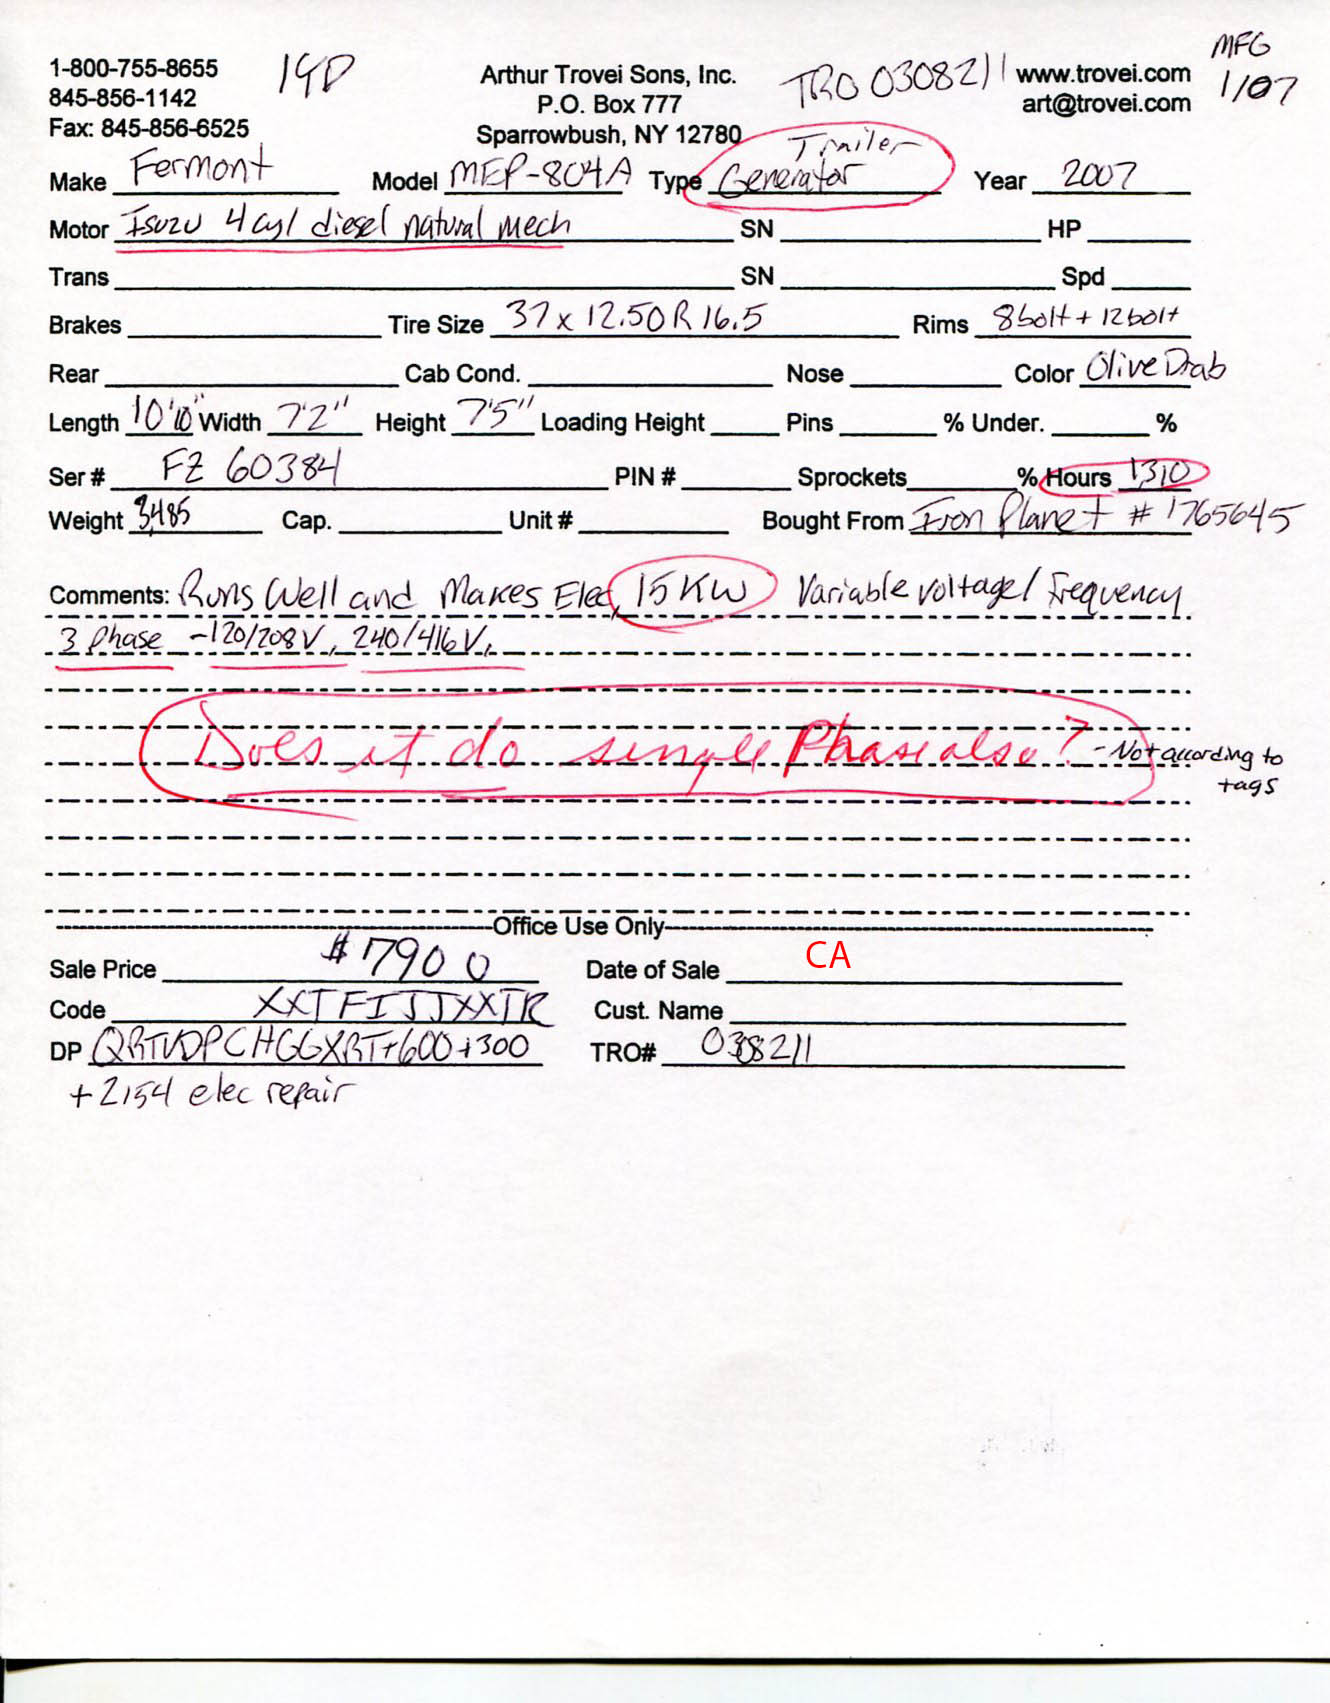 1-800-755-8655 Arthur Trovei Sons, Inc. TRO 0308211 www.trovei.com MFG
845-856-1142 P.O. Box 777 art@trovei.com 1/07
Fax: 845-856-6525 Sparrowbush, NY 12780
Trailer
Make Fermont Model MEP-804A Type Generator Year 2007
Motor Isuzu 4 cyl diesel natural mech SN HP
Trans SN Spd
Brakes Tire Size 37 x 12.50 R 16.5 Rims 8 bolt + 12 bolt
Rear Cab Cond. Nose Color Olive Drab
Length 10'10" Width 7'2" Height 7'5" Loading Height Pins % Under. %
Ser # FZ 60384 PIN # Sprockets % Hours 1,310
Weight 3,485 Cap. Unit # Bought From Iron Planet # 1765645
Comments: Runs Well and Makes Elec, 15 KW Variable voltage/frequency
3 Phase - 120/208 V, 240/416 V,
Does it do single Phase also? - Not according to
tags
Office Use Only
Sale Price $7900 Date of Sale CA
Code XXTFIJJXXTR Cust. Name
DP +600+300 TRO# 0308211
+2154 elec repair